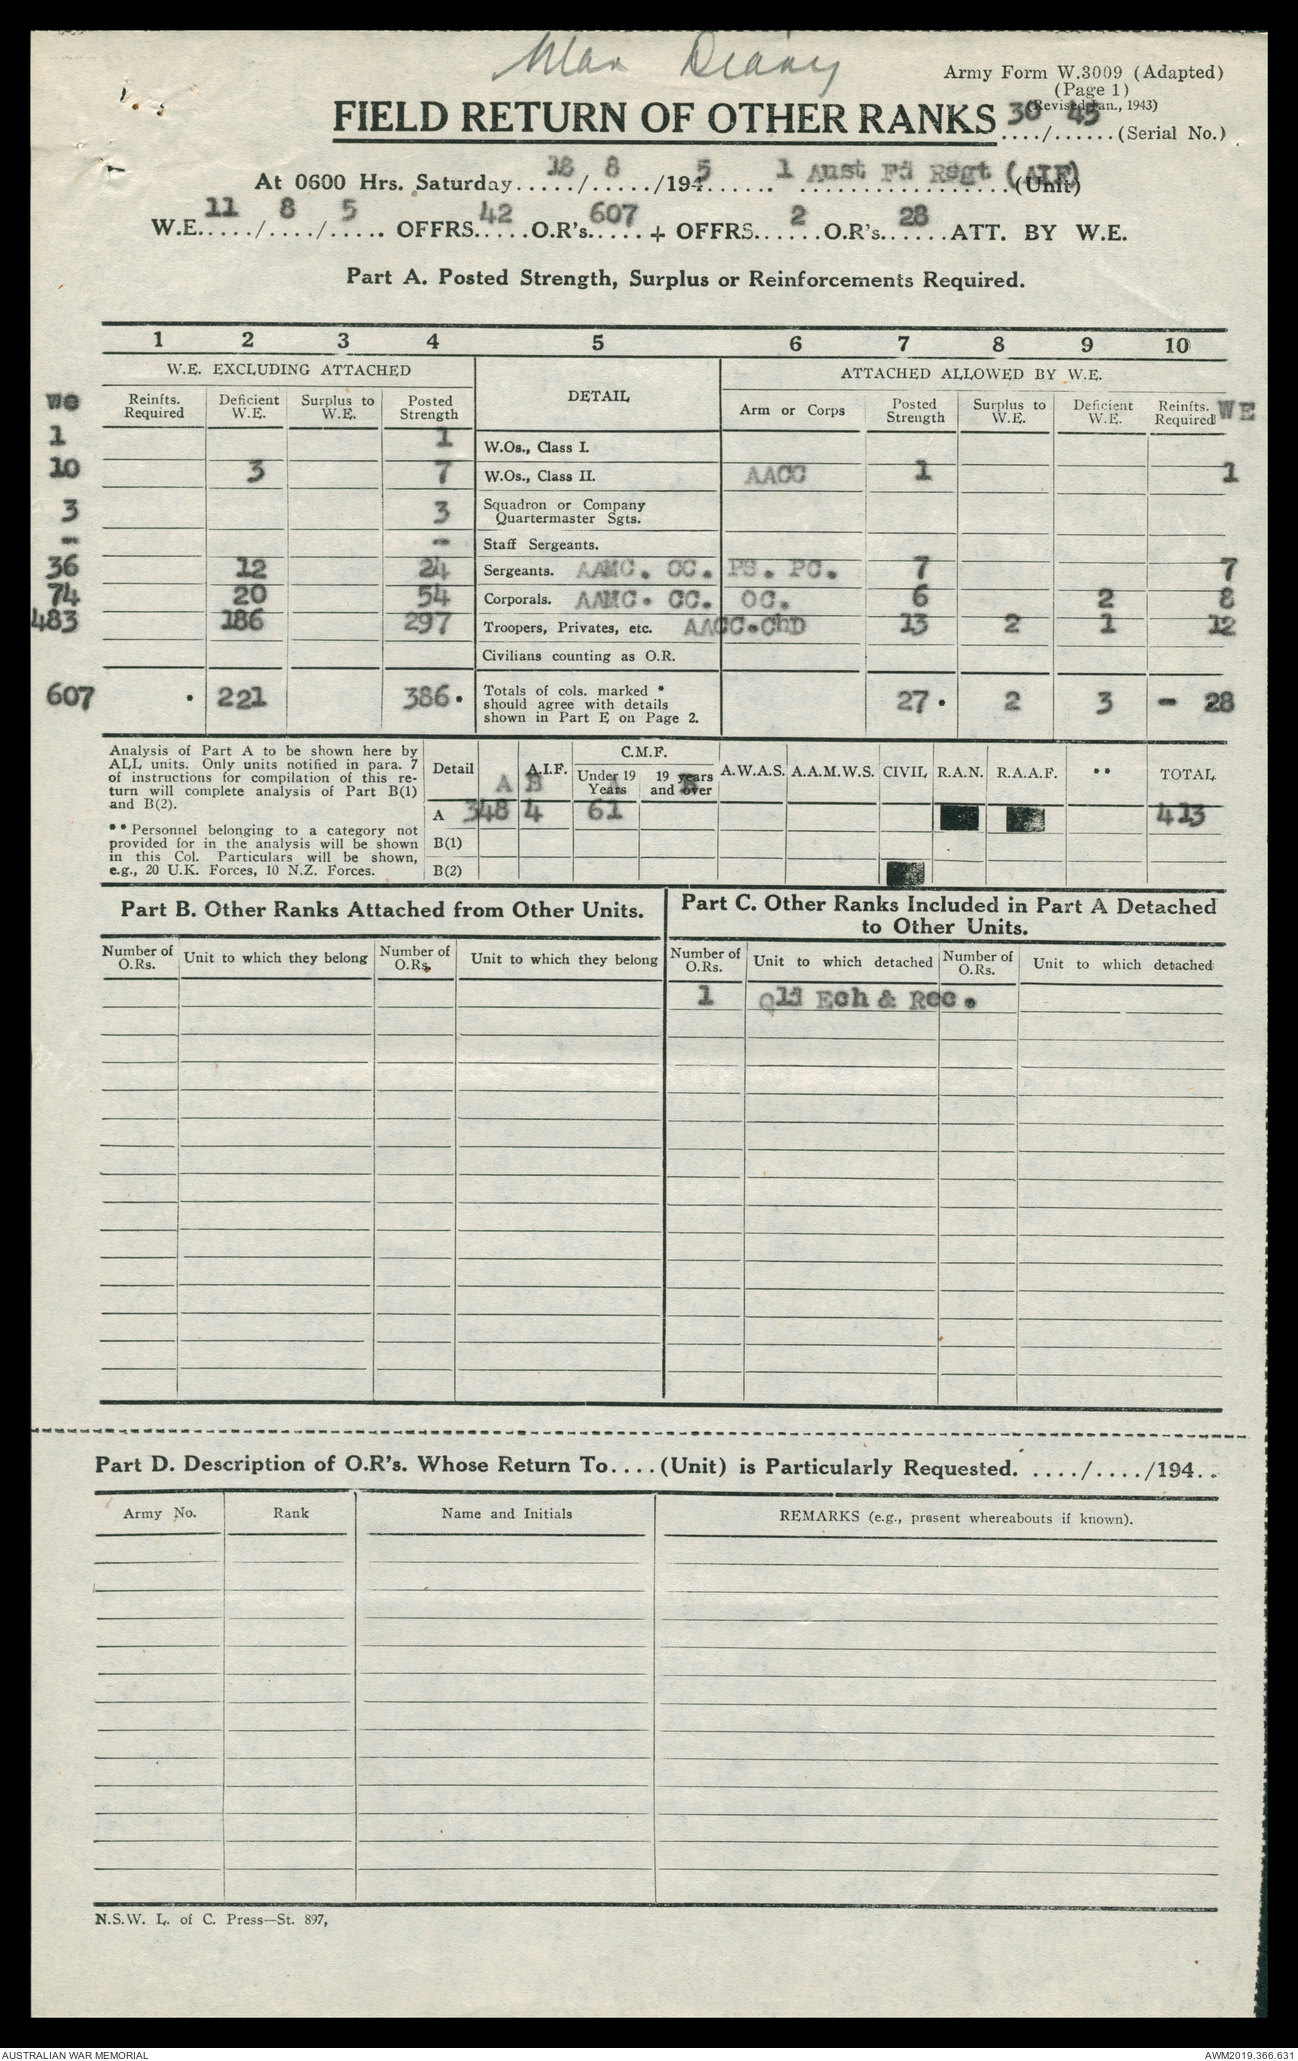 War Diary
Army Form W.3009 (Adapted)
(Page 1)
(Revised Jan., 1943)
FIELD RETURN OF OTHER RANKS 30/45 (Serial No.)
At 0600 Hrs. Saturday 18/8/1945 1 Aust Fd Regt (AIF) (Unit)
W.E. 11/8/5 OFFRS. 42 O.R's. 607 + OFFRS. 2 O.R's. 28 ATT. BY W.E.
Part A. Posted Strength, Surplus or Reinforcements Required.
1 2 3 4 5 6 7 8 9 10
W.E. EXCLUDING ATTACHED DETAIL ATTACHED ALLOWED BY W.E.
WO Reinfts. Required Deficient W.E. Surplus to W.E. Posted Strength Arm or Corps Posted Strength Surplus to W.E. Deficient W.E. Reinfts. Required WE
1 1 W.Os., Class I.
10 3 7 W.Os., Class II. AACC 1 1
3 3 Squadron or Company Quartermaster Sgts.
- - Staff Sergeants.
36 12 24 Sergeants. AAMC. CC. PS. PC. 7 7
74 20 54 Corporals. AAMC. CC. OC. 6 2 8
483 186 297 Troopers, Privates, etc. AACC.ChD 13 2 1 12
Civilians counting as O.R.
607 • 221 386• Totals of cols. marked * should agree with details shown in Part E on Page 2. 27 • 2 3 - 28
Analysis of Part A to be shown here by
ALL units. Only units notified in para. 7
of instructions for compilation of this re-
turn will complete analysis of Part B(1)
and B(2).
** Personnel belonging to a category not
provided for in the analysis will be shown
in this Col. Particulars will be shown,
e.g., 20 U.K. Forces, 10 N.Z. Forces.
C.M.F.
Detail A B A.I.F. Under 19 Years 19 years and over B A.W.A.S. A.A.M.W.S. CIVIL R.A.N. R.A.A.F. ** TOTAL
A 348 4 61 413
B(1)
B(2)
Part B. Other Ranks Attached from Other Units.
Part C. Other Ranks Included in Part A Detached
to Other Units.
Number of O.Rs. Unit to which they belong Number of O.Rs. Unit to which they belong Number of O.Rs. Unit to which detached Number of O.Rs. Unit to which detached
1 Qld Ech & Rec.
Part D. Description of O.R's. Whose Return To....(Unit) is Particularly Requested. ..../..../194..
Army No. Rank Name and Initials REMARKS (e.g., present whereabouts if known).
N.S.W. L. of C. Press—St. 897,
AUSTRALIAN WAR MEMORIAL AWM2019.366.631